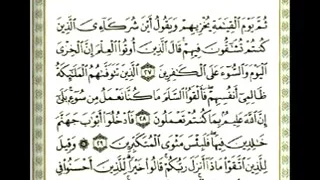 ثُمَّ يَوْمَ ٱلْقِيَٰمَةِ يُخْزِيهِمْ وَيَقُولُ أَيْنَ شُرَكَآءِىَ ٱلَّذِينَ
كُنتُمْ تُشَٰٓقُّونَ فِيهِمْ قَالَ ٱلَّذِينَ أُوتُوا۟ ٱلْعِلْمَ إِنَّ ٱلْخِزْىَ
ٱلْيَوْمَ وَٱلسُّوٓءَ عَلَى ٱلْكَٰفِرِينَ ٢٧ ٱلَّذِينَ تَتَوَفَّىٰهُمُ ٱلْمَلَٰٓئِكَةُ
ظَالِمِىٓ أَنفُسِهِمْ فَأَلْقَوُا۟ ٱلسَّلَمَ مَا كُنَّا نَعْمَلُ مِن سُوٓءٍۭ بَلَىٰٓ
إِنَّ ٱللَّهَ عَلِيمٌۢ بِمَا كُنتُمْ تَعْمَلُونَ ٢٨ فَٱدْخُلُوٓا۟ أَبْوَٰبَ جَهَنَّمَ
خَٰلِدِينَ فِيهَا فَلَبِئْسَ مَثْوَى ٱلْمُتَكَبِّرِينَ ٢٩ وَقِيلَ
لِلَّذِينَ ٱتَّقَوْا۟ مَاذَآ أَنزَلَ رَبُّكُمْ قَالُوا۟ خَيْرًا لِّلَّذِينَ أَحْسَنُوا۟ فِى